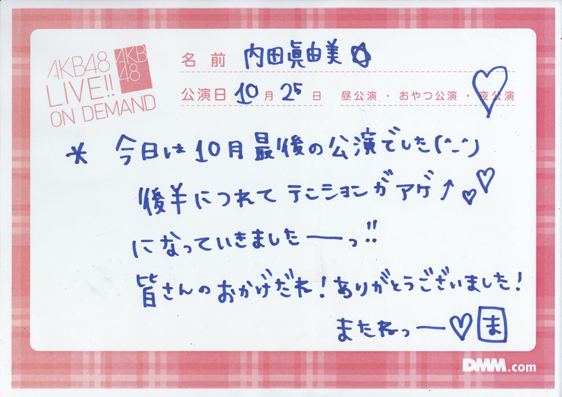 AKB48
LIVE!!
ON DEMAND
AKB
48
名前 内田眞由美
公演日 10月 25日 昼公演・おやつ公演・夜公演
* 今日は10月最後の公演でした(^-^)
後半につれてテンションがアゲ↑♡♡
になっていきましたーっ!!
皆さんのおかげだね!ありがとうございました!
またねっー♡ ま
DMM.com